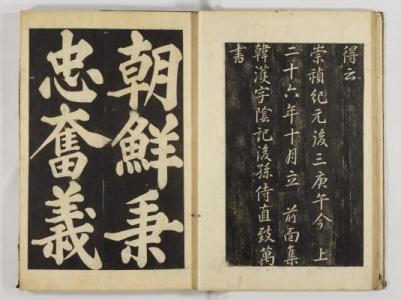 得云
崇禎紀元後三庚午今 上
二十六年十月立 前面集
韓濩字陰記後孫侍直致萬
書
朝鮮秉
忠奮義